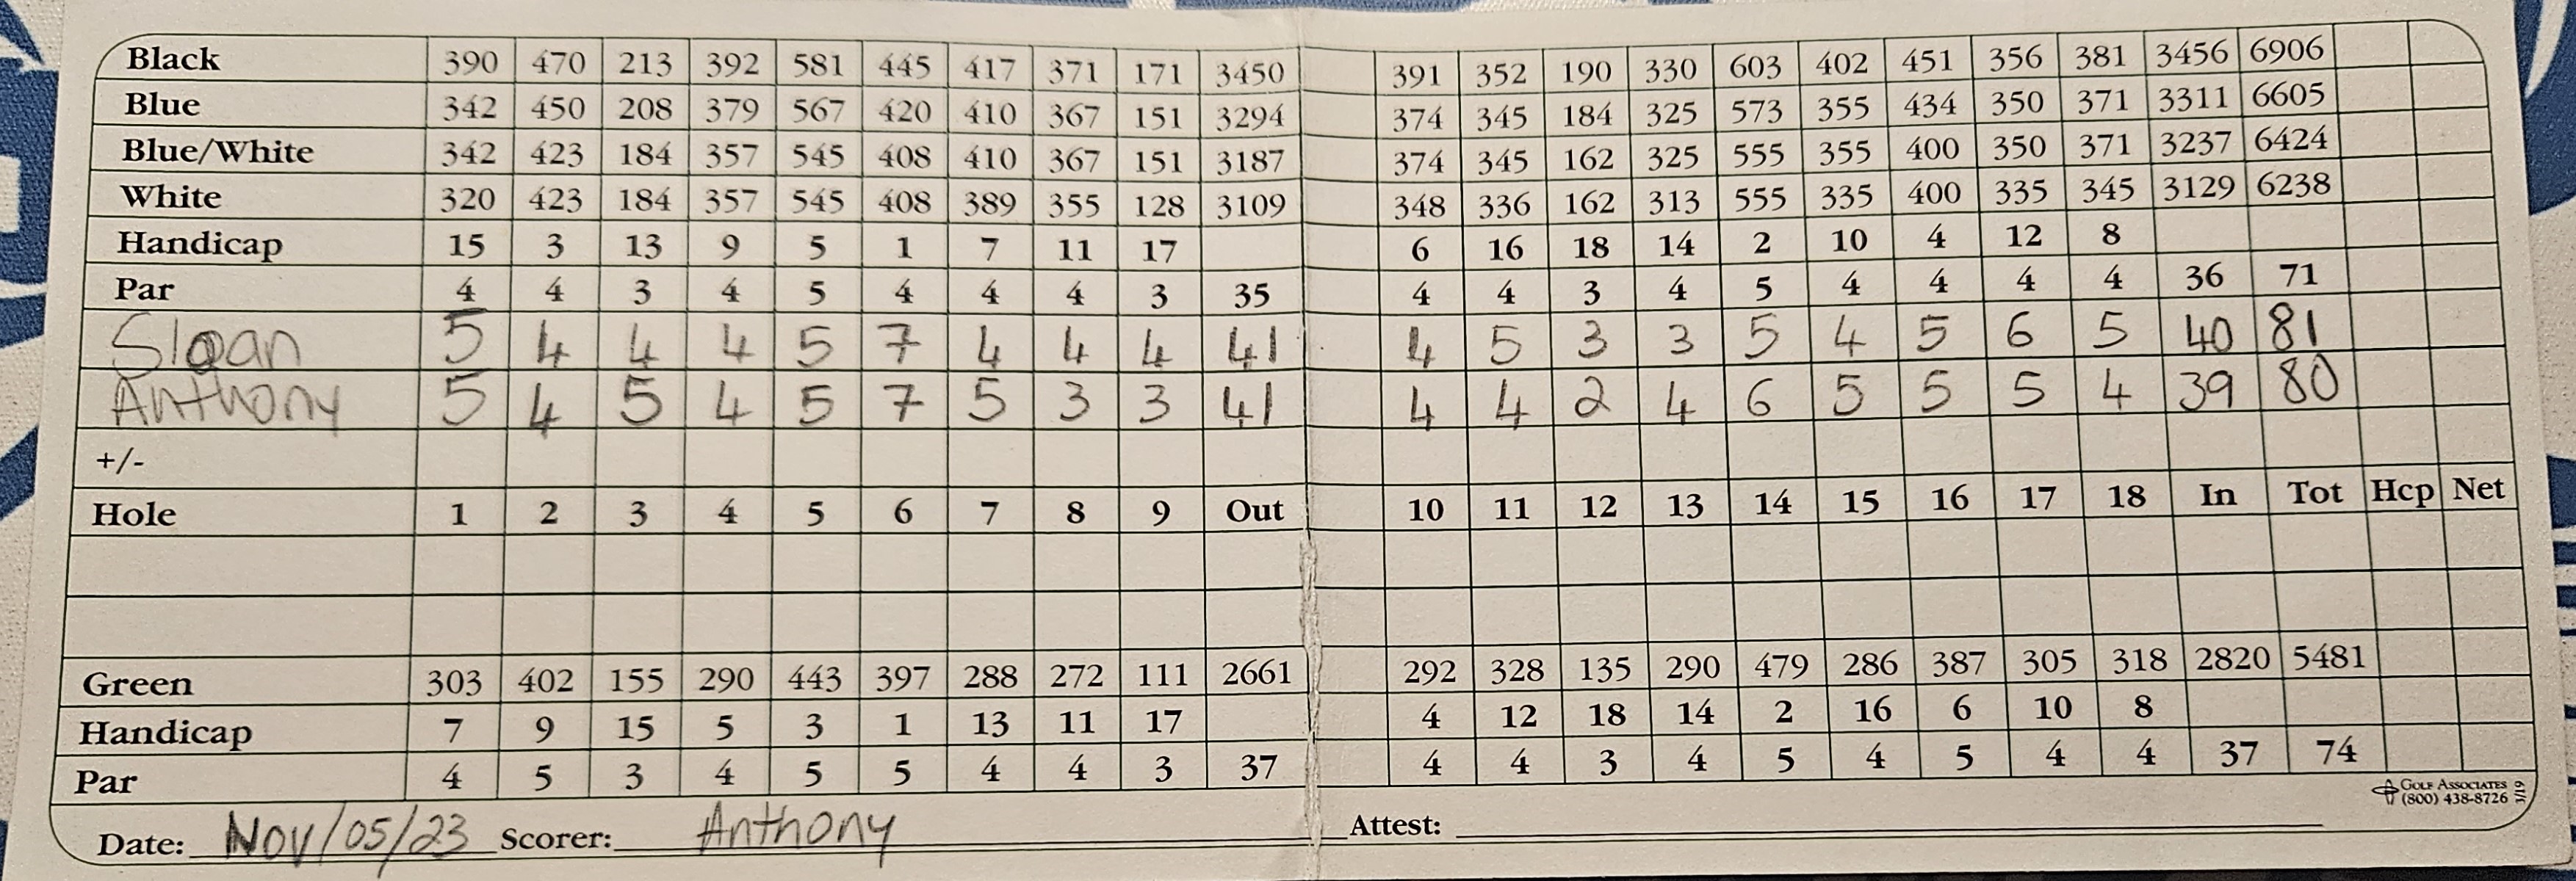 Black 390 470 213 392 581 445 417 371 171 3450 391 352 190 330 603 402 451 356 381 3456 6906
Blue 342 450 208 379 567 420 410 367 151 3294 374 345 184 325 573 355 434 350 371 3311 6605
Blue/White 342 423 184 357 545 408 410 367 151 3187 374 345 162 325 555 355 400 350 371 3237 6424
White 320 423 184 357 545 408 389 355 128 3109 348 336 162 313 555 335 400 335 345 3129 6238
Handicap 15 3 13 9 5 1 7 11 17 6 16 18 14 2 10 4 12 8
Par 4 4 3 4 5 4 4 4 3 35 4 4 3 4 5 4 4 4 4 36 71
Sloan 5 4 4 4 5 7 4 4 4 41 4 5 3 3 5 4 5 6 5 40 81
Anthony 5 4 5 4 5 7 5 3 3 41 4 4 2 4 6 5 5 5 4 39 80
+/-
Hole 1 2 3 4 5 6 7 8 9 Out 10 11 12 13 14 15 16 17 18 In Tot Hcp Net
Green 303 402 155 290 443 397 288 272 111 2661 292 328 135 290 479 286 387 305 318 2820 5481
Handicap 7 9 15 5 3 1 13 11 17 4 12 18 14 2 16 6 10 8
Par 4 5 3 4 5 5 4 4 3 37 4 4 3 4 5 4 5 4 4 37 74
GOLF ASSOCIATES
(800) 438-8726 3/19
Date: Nov/05/23 Scorer: Anthony Attest: